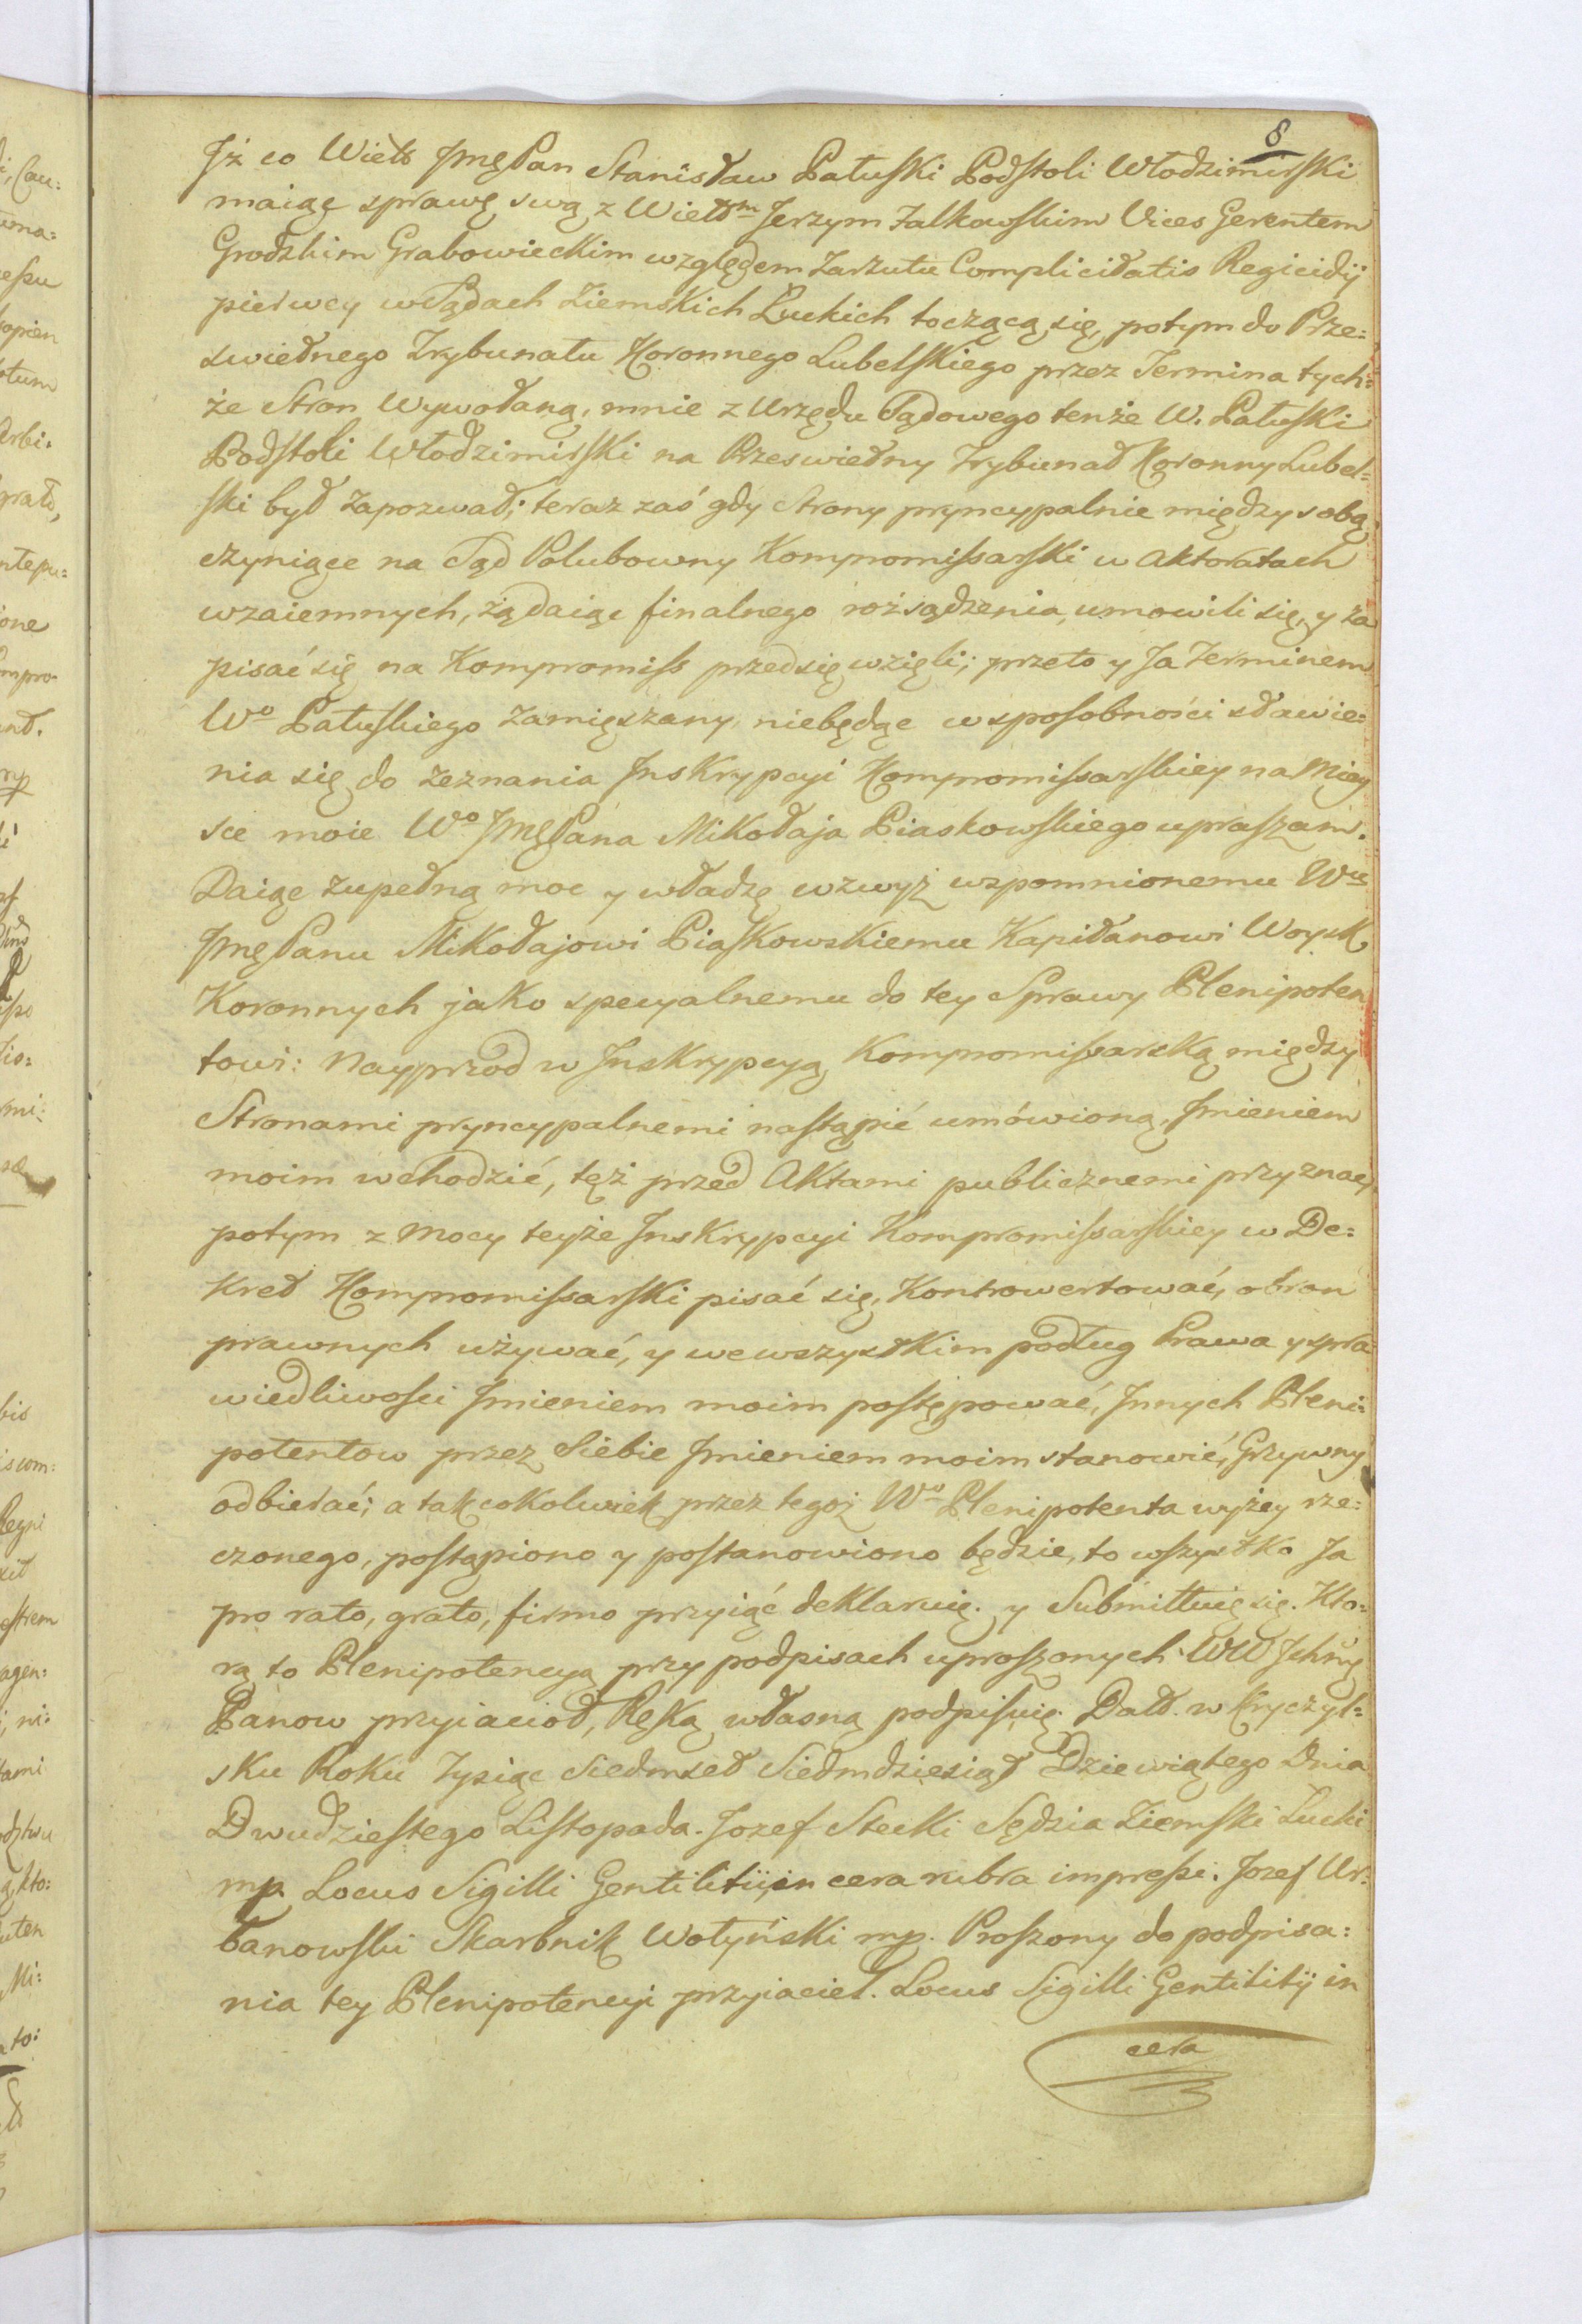 8
Iż co Wielb JmęPan Stanisław Pałuski Podstoli Włodzimirski
maiąc sprawę swą z Wielbm Jerzym Falkowskim Vices Gerentem
Grodzkim Grabowieckim względem Zarzutu Complicitatis Regicidij
pierwey w Sądach Ziemskich Łuckich toczącą się, potym do Prze=
swietnego Trybunału Koronnego Lubelskiego przez Termina tych=
że Stron Wywołaną, mnie z Urzędu Sądowego tenże W. Pałuski
Podstoli Włodzimirski na Przeswietny Trybunał Koronny Lubel=
ski był zapozwał; teraz zaś gdy strony pryncypalnie między sobą
czyniące na Sąd Polubowny Kompromissarski w Aktoratach
wzaiemnych, żądaiąc finalnego rozsądzenia, umowili się, y za
pisać się na Kompromiss przedsięwzięli; przeto y Ja Terminem
Wo Pałuskiego zamięszany niebędąc w sposobności stawie=
nia się do zeznania Inskrypcyi Kompromissarskiey na Miey
sce moie Wo JmęPana Mikołaja Piaskowskiego upraszam.
Daiąc zupełną moc y władzę wzwyż wspomnionemu Wu
JmęPanu Mikołajowi Piaskowskiemu Kapitanowi Woysk
Koronnych jako specyalnemu do tey Sprawy Plenipoten
towi: Nayprzod w Inskrypcyą Kompromissarską między
Stronami pryncypalnemi nastąpić umówioną, Imieniem
moim wchodzić, tęż przed Aktami publicznemi przyznać,
potym z Mocy teyże Inskrypcyi Kompromissarskiey w De=
kret Kompromissarski pisać się, Kontrowertować, obron
prawnych używać, y wewszystkim podług Prawa y spra
wiedliwości Imieniem moim postępować, Innych Pleni=
potentow przez Siebie Imieniem moim stanowić, Grzywny
odbierać; a tak cokolwiek przez tegoż Wo Plenipotenta wyżey rze=
czonego, postąpiono y postanowiono będzie, to wszystko Ja
pro rato, grato, firmo przyiąć deklaruię. y Submittuię się. Kto=
rą to Plenipotencyą przy podpisach uproszonych WW Ichmę
Panow przyiacioł, Ręką własną podpisuię. Datt. w Kryczyl=
sku Roku Tysiąc Siedmset Siedmdziesiąt Dziewiątego Dnia
Dwudziestego Listopada. Jozef Stecki Sędzia Ziemski Łucki
mp Locus Sigilli Gentilitii, in cera rubra impressi. Jozef Ur=
banowski Skarbnik Wołyński mp. Proszony do podpisa=
nia tey Plenipotencyi przyiaciel. Locus Sigilli Gentilitij in
cera